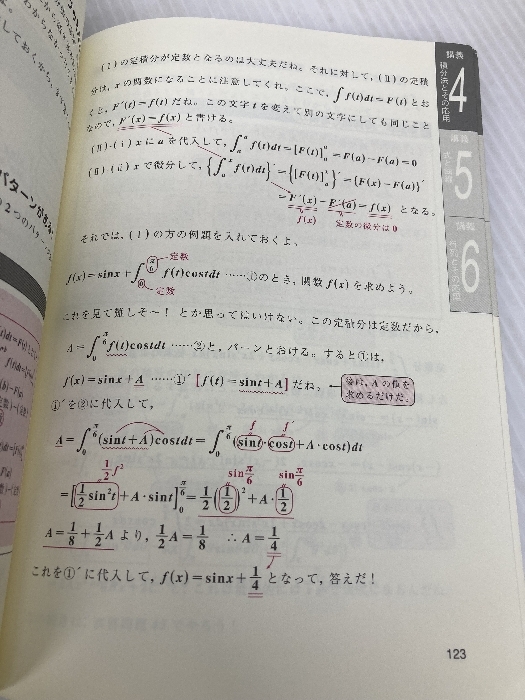 講義
4
積分法とその応用
講義
5
講義
6
(Ⅰ)の定積分が定数となるのは大丈夫だね。それに対して，(Ⅱ)の定積
分は，xの関数になることに注意してくれ。ここで，∫f(t)dt=F(t)とお
くと，F´(t)=f(t)だね。この文字tを変えて別の文字にしても同じこと
なので，F´(x)=f(x)と書ける。
(Ⅱ)-(ⅰ)xにaを代入して，∫ₐᵃ f(t)dt=[F(t)]ₐᵃ=F(a)-F(a)=0
(Ⅱ)-(ⅱ)xで微分して，{∫ₐˣ f(t)dt}´={[F(t)]ₐˣ}´={F(x)-F(a)}´
=F´(x)-F´(a)=f(x) となる。
f(x) 定数の微分は0
それでは，(Ⅰ)の方の例題を入れておくよ。
定数
f(x)=sinx+∫₀^(π/6) f(t)costdt ……①のとき，関数f(x)を求めよう。
定数
これを見て難しそ〜！とか思ってはいけない。この定積分は定数だから，
A=∫₀^(π/6) f(t)costdt ……②と，パーンとおける。すると①は，
f(x)=sinx+A ……①´ [f(t)=sint+A]だね。 ← 後は，Aの値を
求めるだけだ。
①´を②に代入して，
f f´
A=∫₀^(π/6)(sint+A)costdt=∫₀^(π/6)(sint・cost+A・cost)dt
1/2 f² sin π/6 sin π/6
=[1/2 sin²t+A・sint]₀^(π/6)=1/2(1/2)²+A・1/2
A=1/8+1/2 A より，1/2 A=1/8 ∴A=1/4
これを①´に代入して，f(x)=sinx+1/4 となって，答えだ！
123